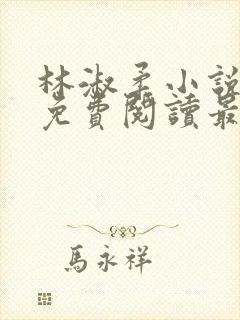 林淑柔小說
免費閱讀最
馬永祥